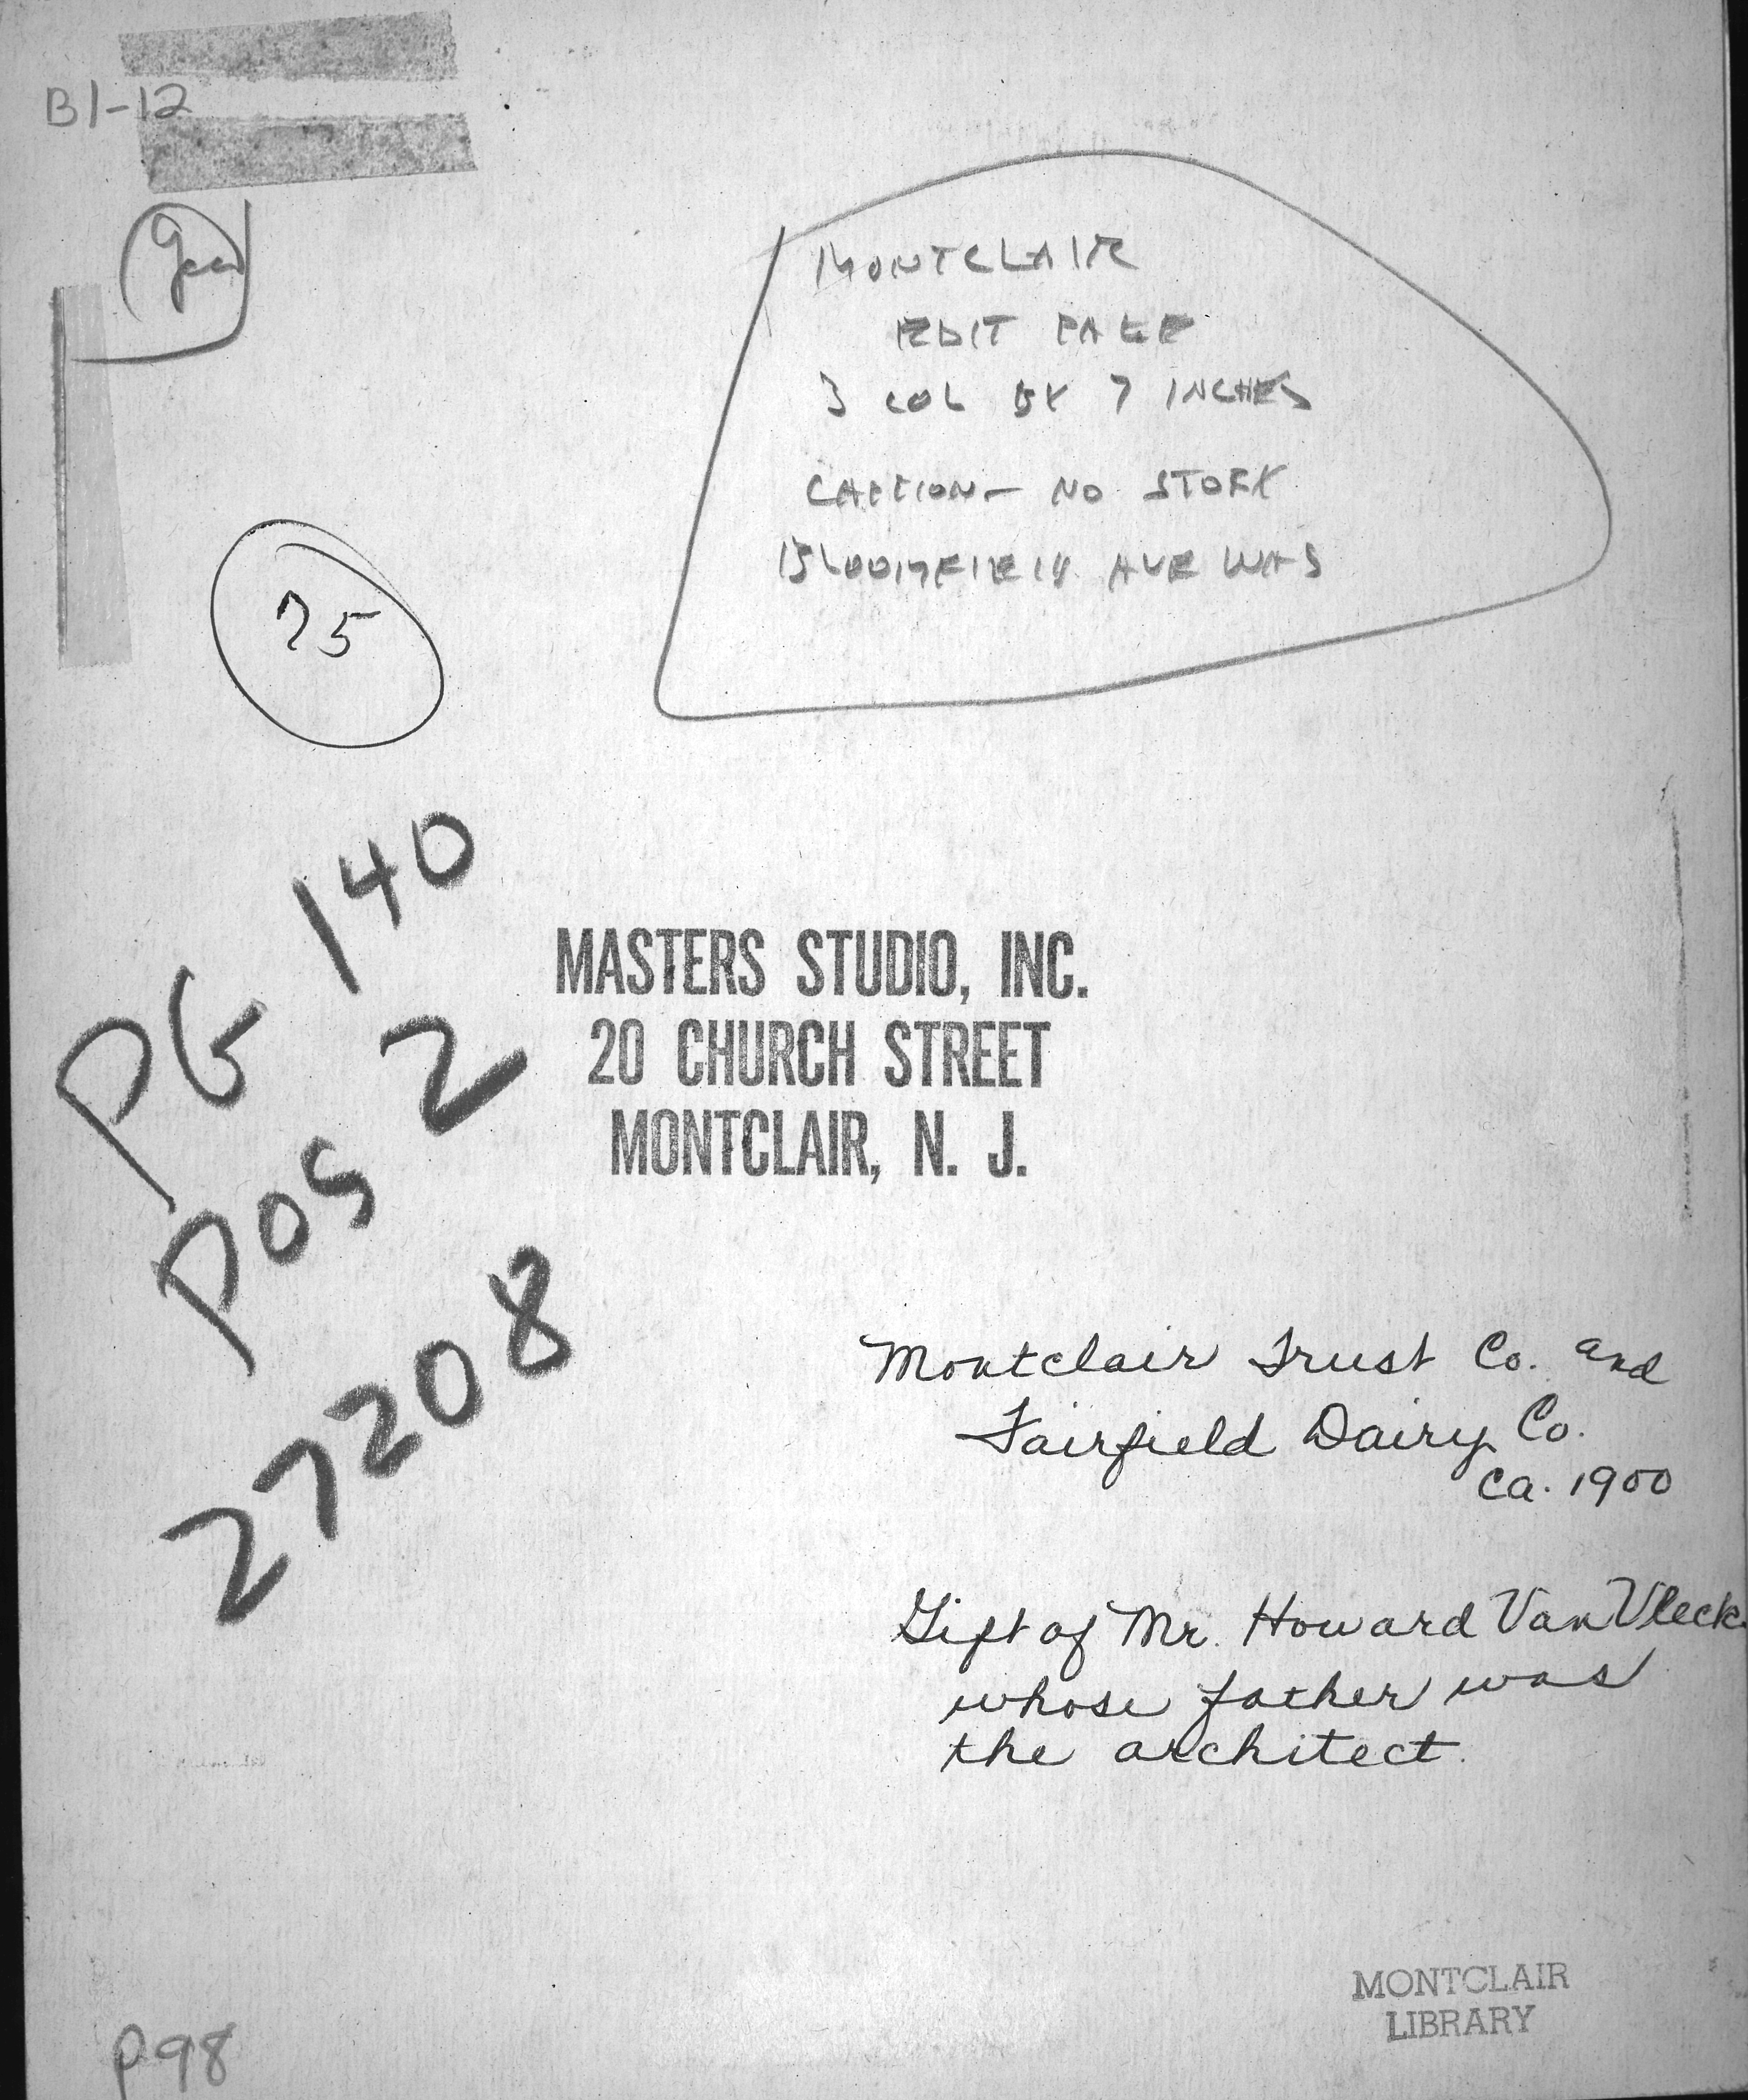 B1-12
MONTCLAIR
EDIT PAGE
3 COL BY 7 INCHES
CAPTION - NO STORY
BLOOMFIELD AVE WAS
75
PG 140
POS 2
27208
MASTERS STUDIO, INC.
20 CHURCH STREET
MONTCLAIR, N. J.
Montclair Trust Co. and
Fairfield Dairy Co.
ca. 1900
Gift of Mr. Howard Van Vleck
whose father was
the architect.
MONTCLAIR
LIBRARY
p98